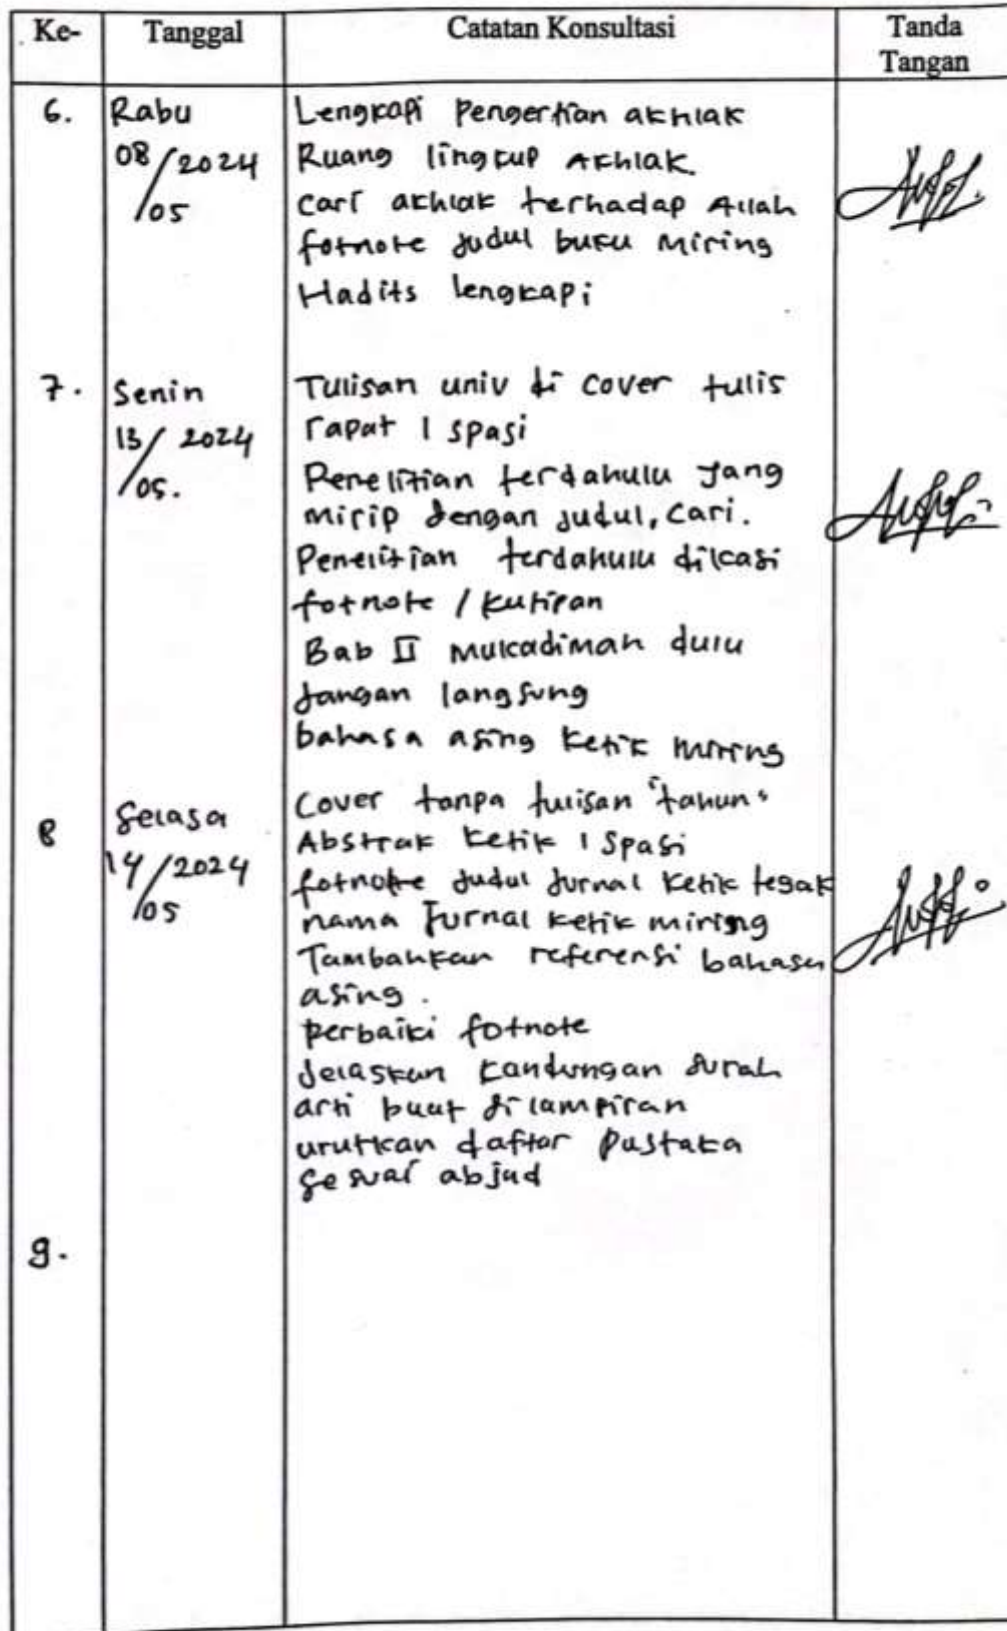 Ke- Tanggal Catatan Konsultasi Tanda
Tangan
6. Rabu Lengkapi Pengertian akhlak
08/05/2024 Ruang lingkup Akhlak.
cari akhlak terhadap Allah
fotnote judul buku miring
Hadits lengkapi
7. Senin Tulisan univ di cover tulis
13/05/2024 rapat 1 spasi
Penelitian terdahulu yang
mirip dengan judul, cari.
Penelitian terdahulu dikasi
fotnote / kutipan
Bab II mukadimah dulu
jangan langsung
bahasa asing ketik miring
8 Selasa Cover tanpa tulisan "tahun"
14/05/2024 Abstrak ketik 1 Spasi
fotnote judul jurnal ketik tegak
nama Jurnal ketik miring
Tambahkan referensi bahasa
asing.
perbaiki fotnote
jelaskan kandungan surah
arti buat dilampiran
urutkan daftar pustaka
sesuai abjad
9.